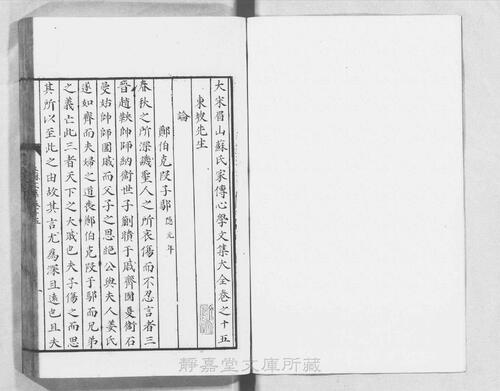 大宋眉山蘇氏家傳心學文集大全卷之十五
東坡先生
論
鄭伯克段于鄢 隱元年
春秋之所深譏聖人之所哀傷而不忍言者三
晉趙鞅帥師納衛世子蒯聵于戚齊國夏衛石
曼姑帥師圍戚而父子之恩絶公與夫人姜氏
遂如齊而夫婦之道喪鄭伯克段于鄢而兄弟
之義亡此三者天下之大戚也夫子傷之而思
其所以至此之由故其言尤爲深且遠也且夫
靜嘉堂文庫所藏